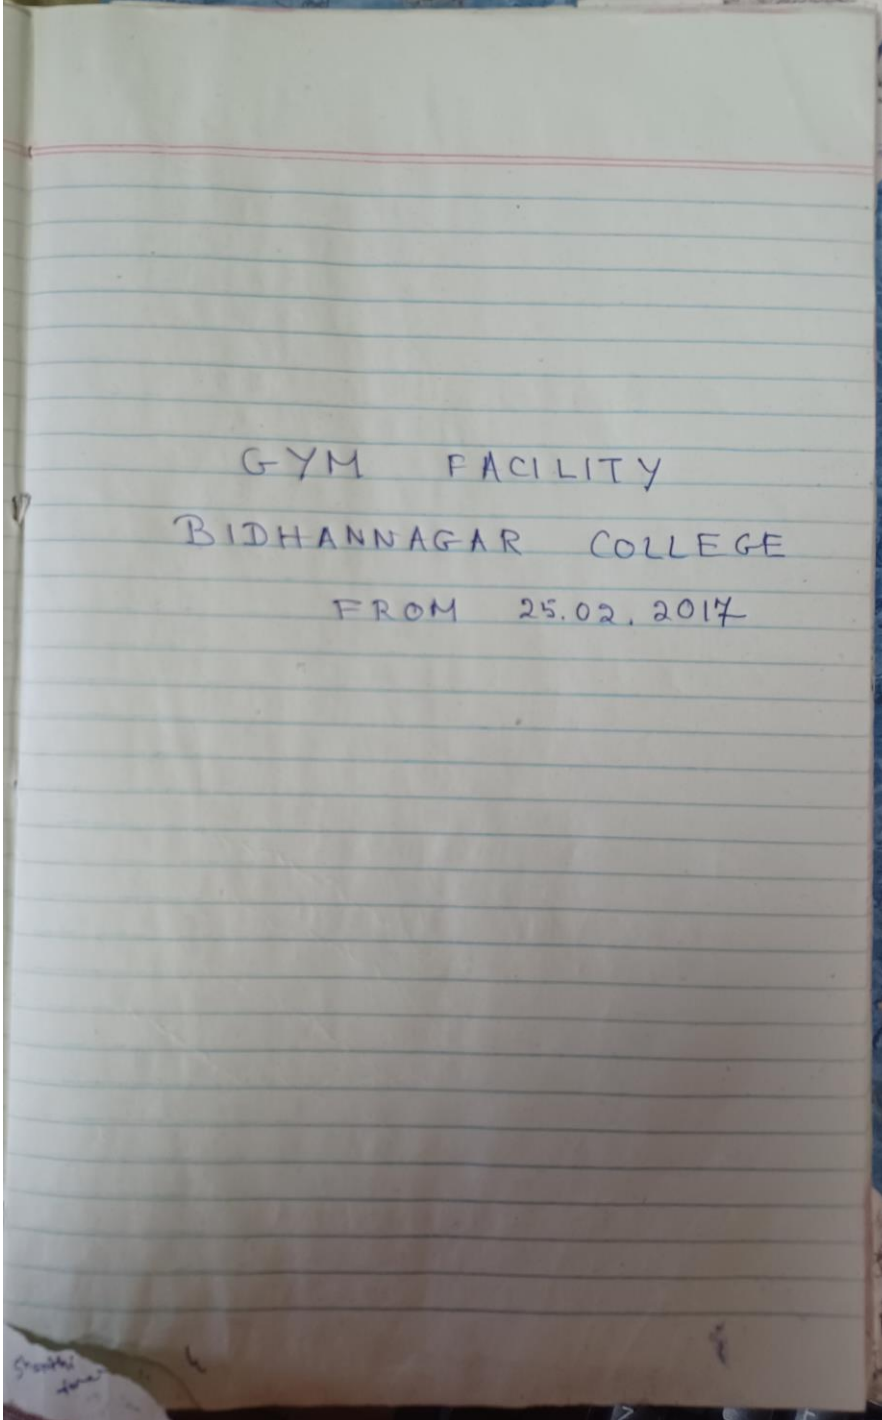 GYM FACILITY
BIDHANNAGAR COLLEGE
FROM 25.02.2017